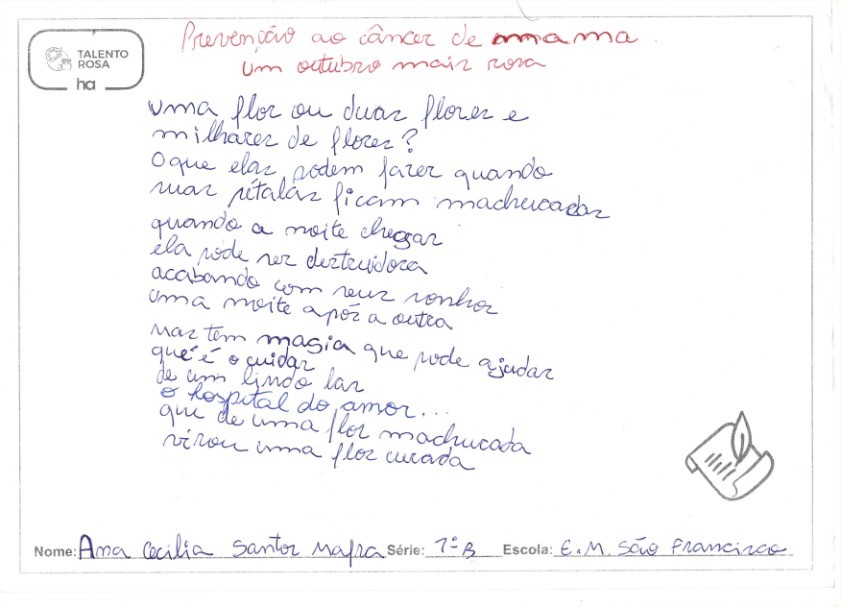 TALENTO
ROSA
ha
Prevenção ao câncer de mama
um outubro mais rosa
uma flor ou duas flores e
milhares de flores?
O que elas podem fazer quando
suas pétalas ficam machucadas
quando a noite chegar
ela pode ser destruidora
acabando com seus sonhos
uma noite após a outra
mas tem magia que pode ajudar
que é o cuidar
de um lindo lar
o hospital do amor...
que de uma flor machucada
virou uma flor curada
Nome: Ana Cecilia Santos Mafra Série: 7º B Escola: E.M. São Francisco